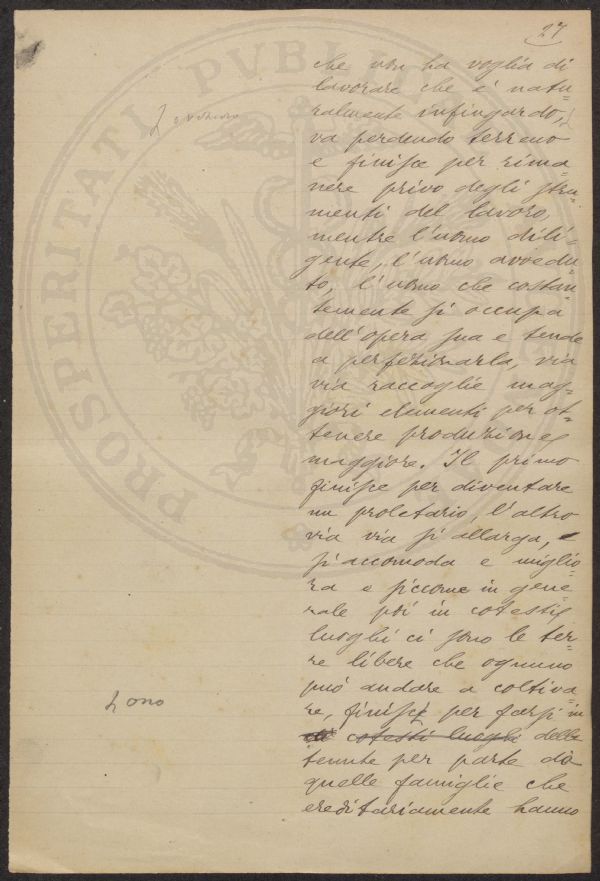 27
che non ha voglia di
lavorare che è natu=
ralmente infingardo,
va perdendo terreno
e finisce per rima=
nere privo degli stru=
menti del lavoro,
mentre l'uomo dili=
gente, l'uomo avvedu=
to, l'uomo che costan=
temente si occupa
dell'opera sua e tende
a perfezionarla, via
via raccoglie mag=
giori elementi per ot=
tenere produzione
maggiore. Il primo
finisce per diventare
un proletario, l'altro
via via si allarga,
si accomoda e miglio=
ra e siccome in gene=
rale poi in cotesti
luoghi ci sono le ter=
re libere che ognuno
può andare a coltiva=
re, finisce per farsi in
cotesti luoghi delle
tenute per parte di
quelle famiglie che
ereditariamente hanno
PROSPERITATI PVBLIC